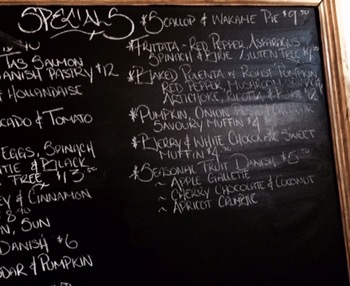 SPECIALS
TAS SALMON
DANISH PASTRY $12
HOLLANDAISE
& TOMATO
EGGS, SPINACH
& BLACK
FREE $13.50
& CINNAMON
SUN
DANISH $6
& PUMPKIN
* SCALLOP & WAKAME PIE $9.50
* FRITTATA - RED PEPPER, ASPARAGUS
SPINACH & BRIE GLUTEN FREE
* BAKED POLENTA W ROAST PUMPKIN,
RED PEPPER, MUSHROOM
ARTICHOKE, RICOTTA $12
* PUMPKIN, ONION
SAVOURY MUFFIN $4
* BERRY & WHITE CHOCOLATE SWEET
MUFFIN $4
* SEASONAL FRUIT DANISH $5.50
~ APPLE GALLETTE
~ CHERRY CHOCOLATE & COCONUT
~ APRICOT CRUMBLE